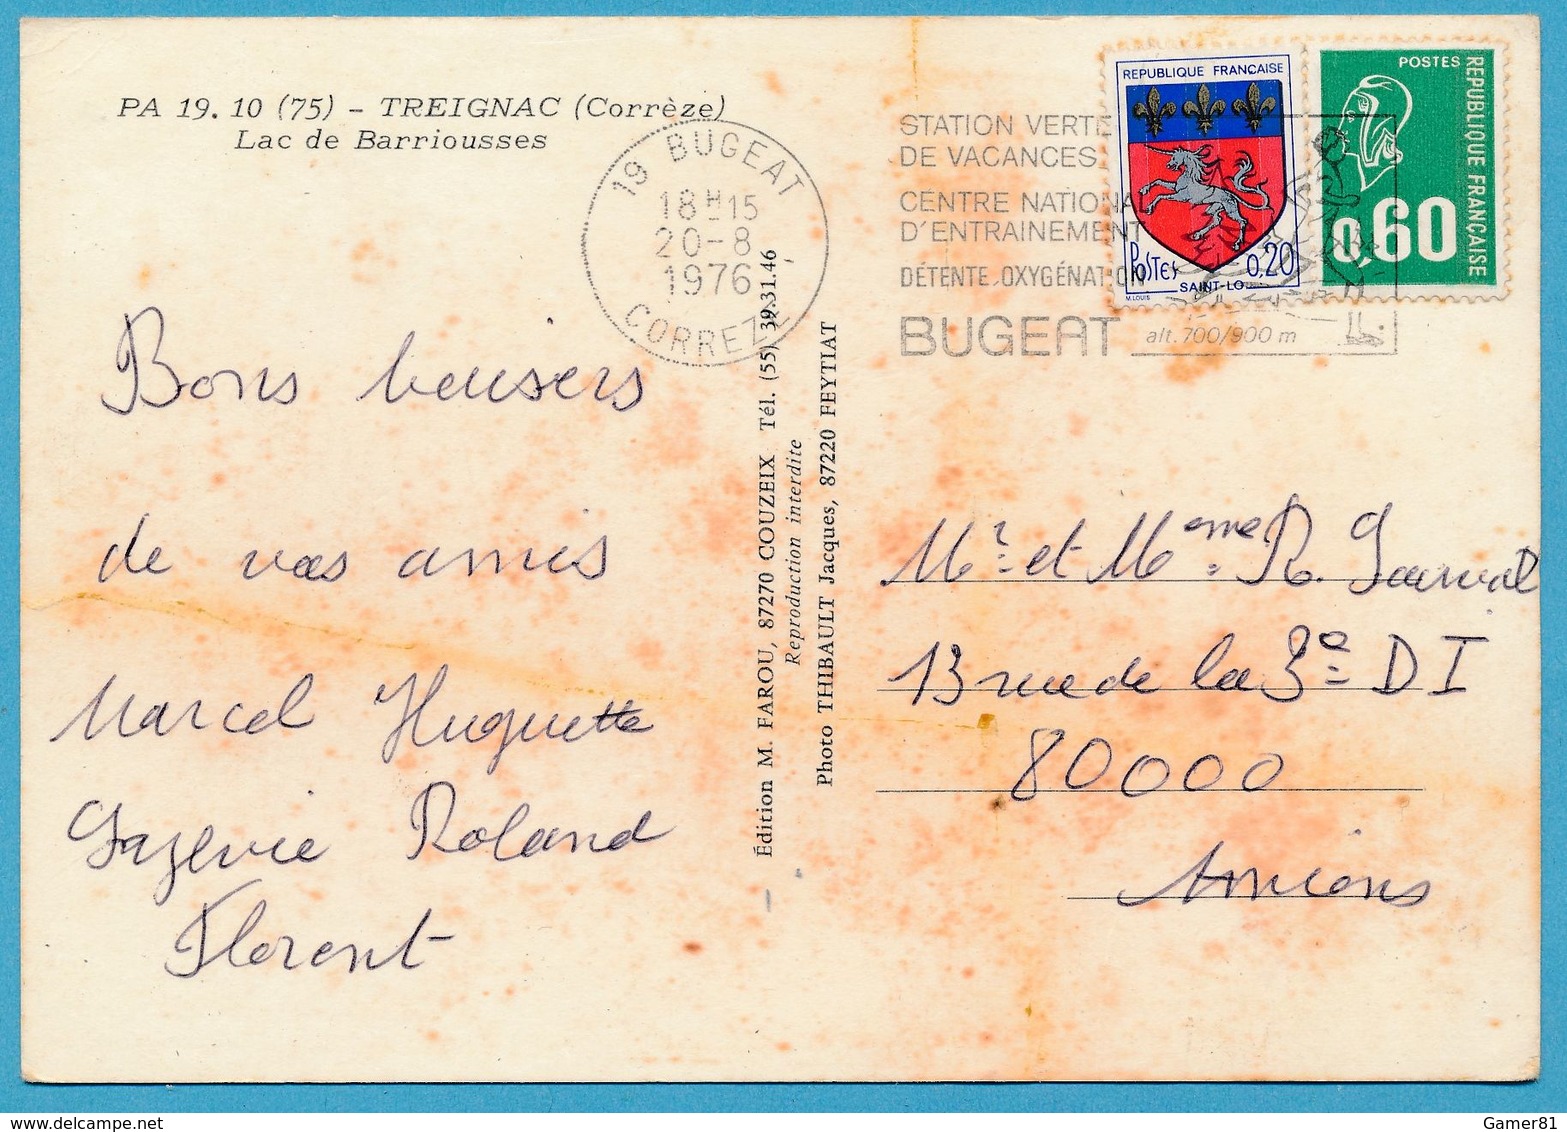 PA 19. 10 (75) – TREIGNAC (Corrèze)
Lac de Barriousses
19 BUGEAT
18H15
20-8
1976
CORREZE
STATION VERTE
DE VACANCES
CENTRE NATIONAL
D'ENTRAINEMENT
DÉTENTE, OXYGÉNATION
BUGEAT
alt. 700/900 m
REPUBLIQUE FRANÇAISE
POSTES
0,20
SAINT-LO
M.LOUIS
POSTES
REPUBLIQUE FRANÇAISE
0,60
Bons beusers
de vos amis
Marcel Huguette
Roland
Florent
Édition M. FAROU, 87270 COUZEIX Tél. (55) 39.31.46
Reproduction interdite
Photo THIBAULT Jacques, 87220 FEYTIAT
Mr et Meme R.
13 rue de la 3e D I
80000
Amiens
Gamer81